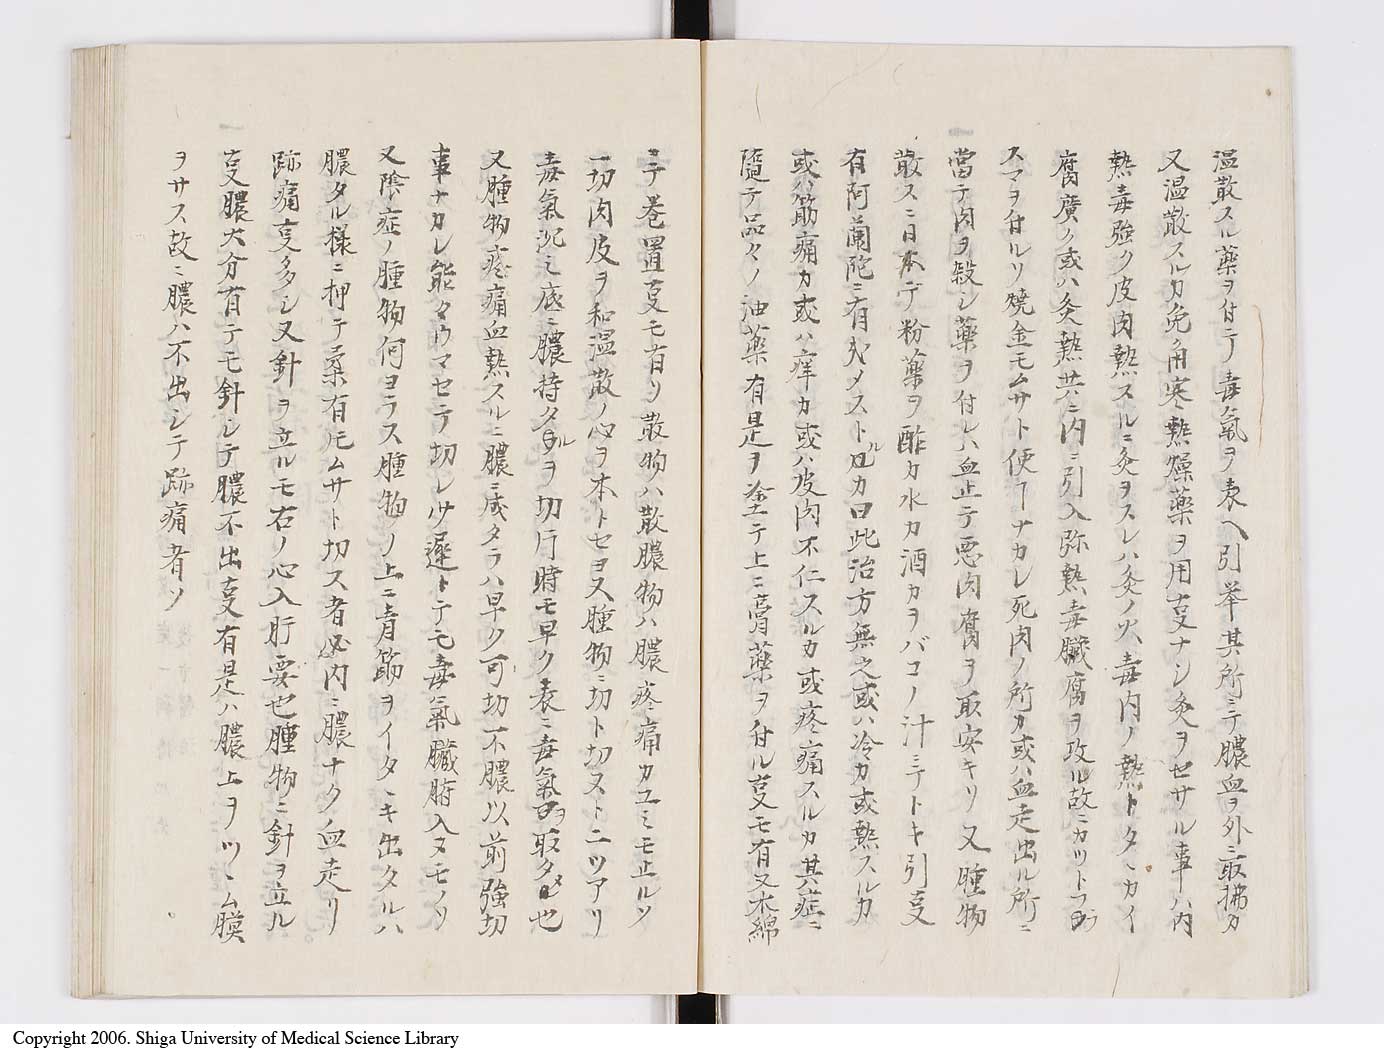 温散スル薬ヲ付テ毒氣ヲ表ヘ引挙其所ニテ膿血ヲ外ニ取拂カ
又温散スルカ免角寒熱燥薬ヲ用叓ナシ灸ヲセサル事ハ内
熱毒強ク皮肉熱スルニ灸ヲスレハ灸ノ火毒内ノ熱トタヽカイ
腐廣ク或ハ灸熱共ニ内ニ引入弥熱毒臓腐ヲ攻ル故ニカツトフ
スマヲ付ルソ焼金モムサト使フナカレ死肉ノ所カ或ハ血走出ル所ニ
一當テ肉ヲ殺シ薬ヲ付レハ血止テ悪肉腐ヲ取安キソ又腫物
散スニ日本デ粉薬ヲ酢カ水カ酒カヲバコノ汁ニテトキ引叓
有阿蘭陀ニ有外メストル曰此治方無之或ハ冷カ或熱スルカ
或ハ筋痛カ或ハ痒カ或ハ皮肉不仁スルカ或疼痛スルカ其症ニ
随テ品々ノ油薬有是ヲ塗テ上ニ膏薬ヲ付ル叓モ有又木綿
ニテ巻置叓モ有ソ散物ハ散膿物ハ膿疼痛カユミモ止ルソ
一切肉皮ヲ和温散ノ心ヲ本トセヨ又腫物ニ切ト切ストニツアリ
毒氣沉ミ底ニ膿持タルヲ切片時モ早ク表ニ毒氣ヲ取タメ也
又腫物疼痛血熱スルニ膿ニ成タラハ早ク可切不膿以前強切
事ナカレ能々ウマセテ切レ少遅トテモ毒氣臓腑入ヌモノソ
又陰症ノ腫物何ヨラス腫物ノ上ニ青筋ヲイタヽキ出タルハ
膿タル様ニ押テ柔有モムサト切ス者必内ニ膿ナク血走リ
跡痛叓多シ又針ヲ立ルモ右ノ心入肝要也腫物ニ針ヲ立ル
一叓膿大分有テモ針シテ膿不出叓有是ハ膿上ヲツヽム膜
ヲサス故ニ膿ハ不出シテ跡痛者ソ
Copyright 2006. Shiga University of Medical Science Library